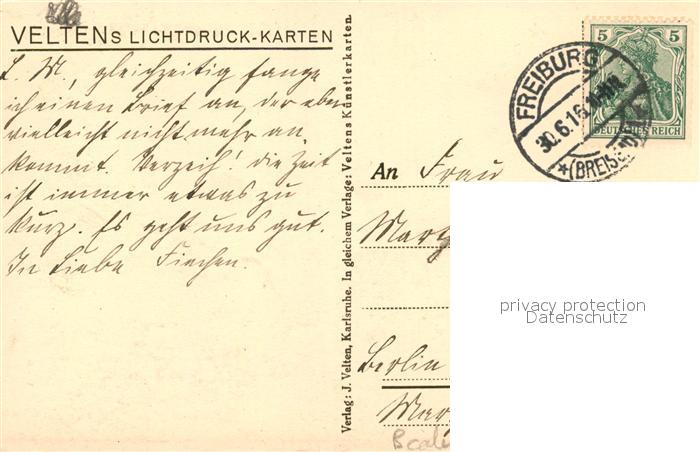 VELTENS LICHTDRUCK-KARTEN
L. M., gleichzeitig fange
ich einen Brief an, der aber
vielleicht nicht mehr an
kommt. Verzeih! die Zeit
ist immer etwas zu
kurz. Es geht uns gut.
In Liebe
Verlag: J. Velten, Karlsruhe. In gleichem Verlage: Veltens Künstlerkarten.
FREIBURG
30.6.16
*(BREISG
5 5
DEUTSCHES REICH
An Frau
Berlin
privacy protection
Datenschutz